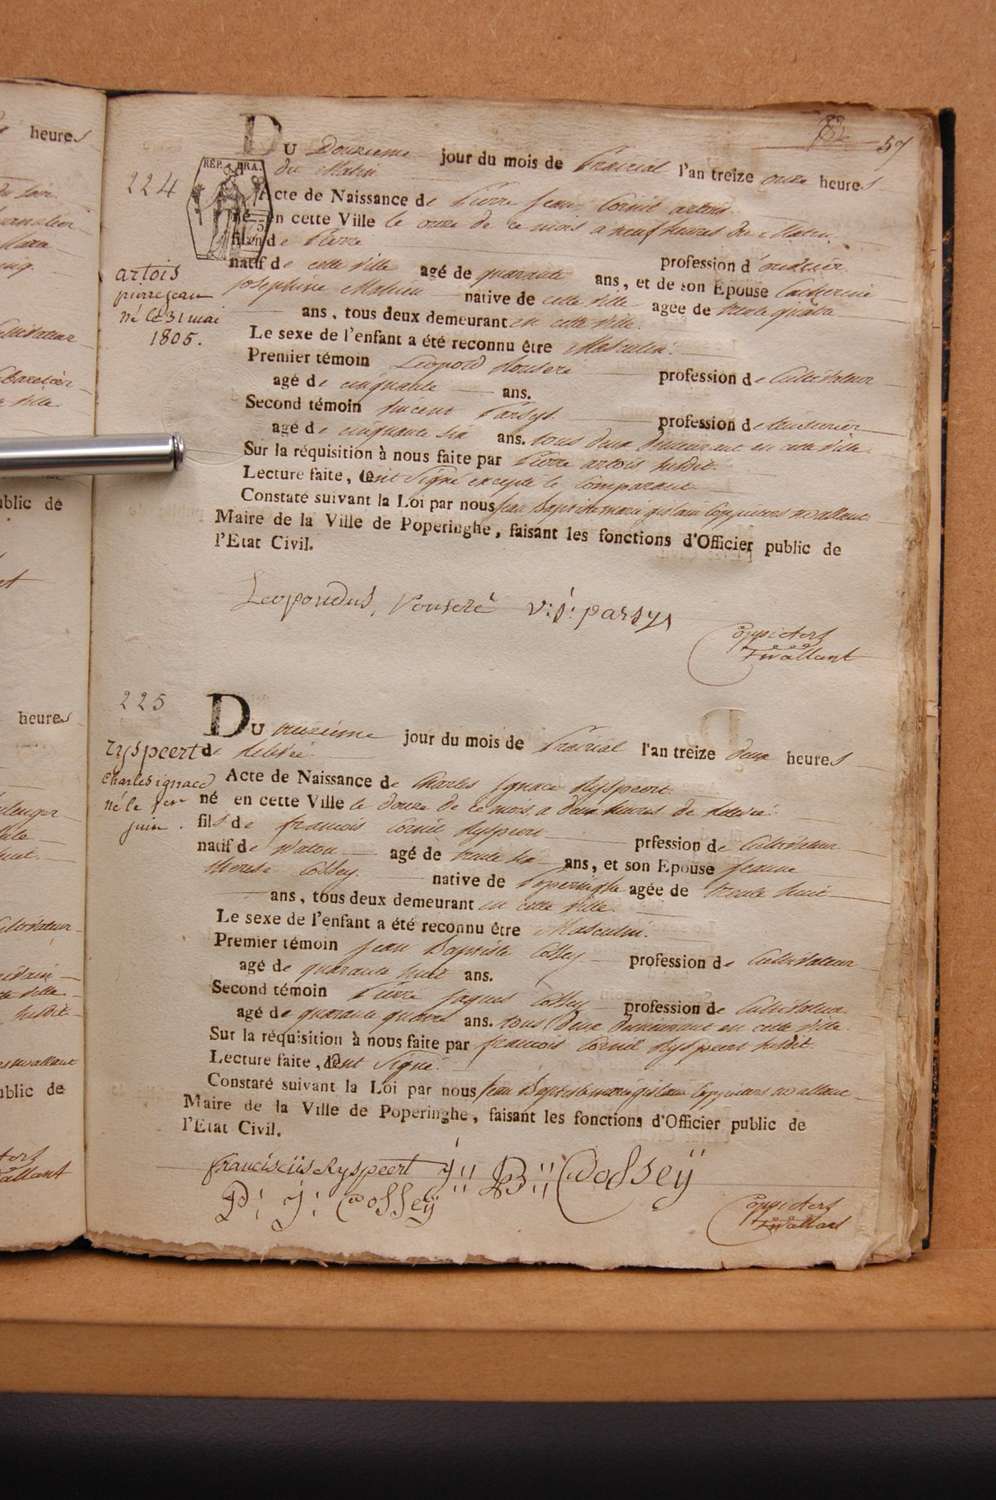 57
224
REP. FRA.
artois
pierre jean
né le 31 mai
1805.
DU Douzieme jour du mois de Prairial l'an treize onze heures
du Matin
Acte de Naissance de Pierre Jean Cornil artois
né en cette Ville le onze de ce mois a neuf heures du Matin,
fils de Pierre profession d'ouvrier
natif de cette Ville agé de quarante ans, et de son Epouse Catherine
Josephine Mahieu native de cette Ville agée de trente quatre
ans, tous deux demeurant en cette Ville.
Le sexe de l'enfant a été reconnu être Masculin.
Premier témoin Leopold profession de Cultivateur
agé de cinquante ans.
Second témoin Vincent Parsys profession de
agé de cinquante six ans. tous deux demeurant en cette Ville.
Sur la réquisition à nous faite par Pierre artois susdit.
Lecture faite, ont Signé excepté le Comparant
Constaté suivant la Loi par nous Jean Baptiste
Maire de la Ville de Poperinghe, faisant les fonctions d'Officier public de
l'Etat Civil.
Leopoldus V: j: parsys
225
ryspeert
charles ignace
né le 1er
juin.
DU treizième jour du mois de Prairial l'an treize deux heures
de relevée
Acte de Naissance de Charles Ignace Ryspeert
né en cette Ville le douze de ce mois a deux heures de relevée.
fils de francois Cornil Ryspeert prfession de Cultivateur
natif de Watou agé de trente six ans, et son Epouse Jeanne
therese Cossey. native de Poperinghe agée de trente huit
ans, tous deux demeurant en cette Ville.
Le sexe de l'enfant a été reconnu être Masculin.
Premier témoin Jean Baptiste Cossey profession de Cultivateur
agé de quarante huit ans.
Second témoin Pierre Jaques Cossey profession de Cultivateur
agé de quarante quatre ans. tous deux demeurant en cette Ville.
Sur la réquisition à nous faite par francois Cornil Ryspeert susdit.
Lecture faite, ont Signé.
Constaté suivant la Loi par nous Jean Baptiste
Maire de la Ville de Poperinghe, faisant les fonctions d'Officier public de
l'Etat Civil.
franciscüs Ryspeert J:: B:: Cossey
P: J: Cossey